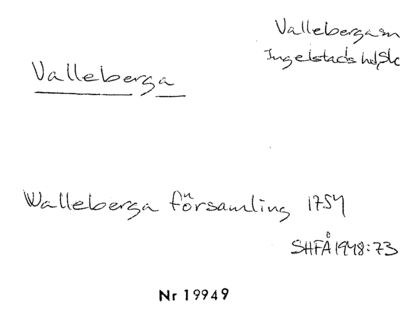 Vallebergasn
Ingelstads hd, Sk
Valleberga
Walleberga församling 1754
SHFÅ 1948:73
Nr 19949